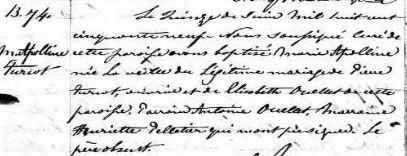 B.74
M. Apolline
Turcot
Le quinze de Juin mil huit cent
cinquante neuf Nous soussigné Curé de
cette paroisse avons baptisé Marie Apolline
née la veille du légitime mariage de Pierre
Turcot, et de Elisabette Ouellet de cette
paroisse. Parrain Antoine Ouellet, Marraine
Henriette Pelletier qui n'ont pu signer. Le
père absent.